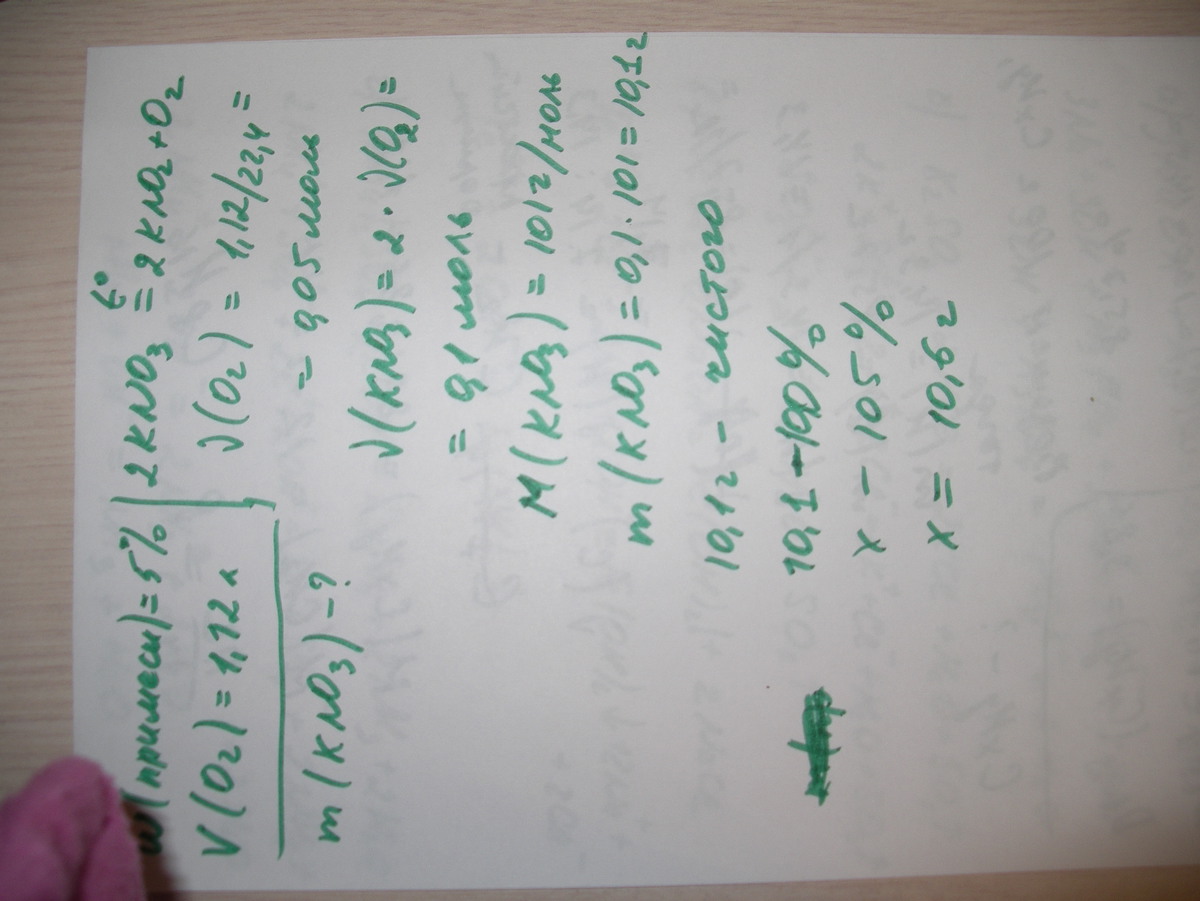 ω(примеси)=5%
V(O₂)=1,12 л
m(KNO₃)-?
2KNO₃ t°= 2KNO₂+O₂
ν(O₂) = 1,12/22,4 =
= 0,05 моль
ν(KNO₃)=2·ν(O₂)=
= 0,1 моль
M(KNO₃)=101г/моль
m(KNO₃)=0,1·101=10,1г
10,1г - чистого
10,1-100%
x - 105%
x = 10,6г